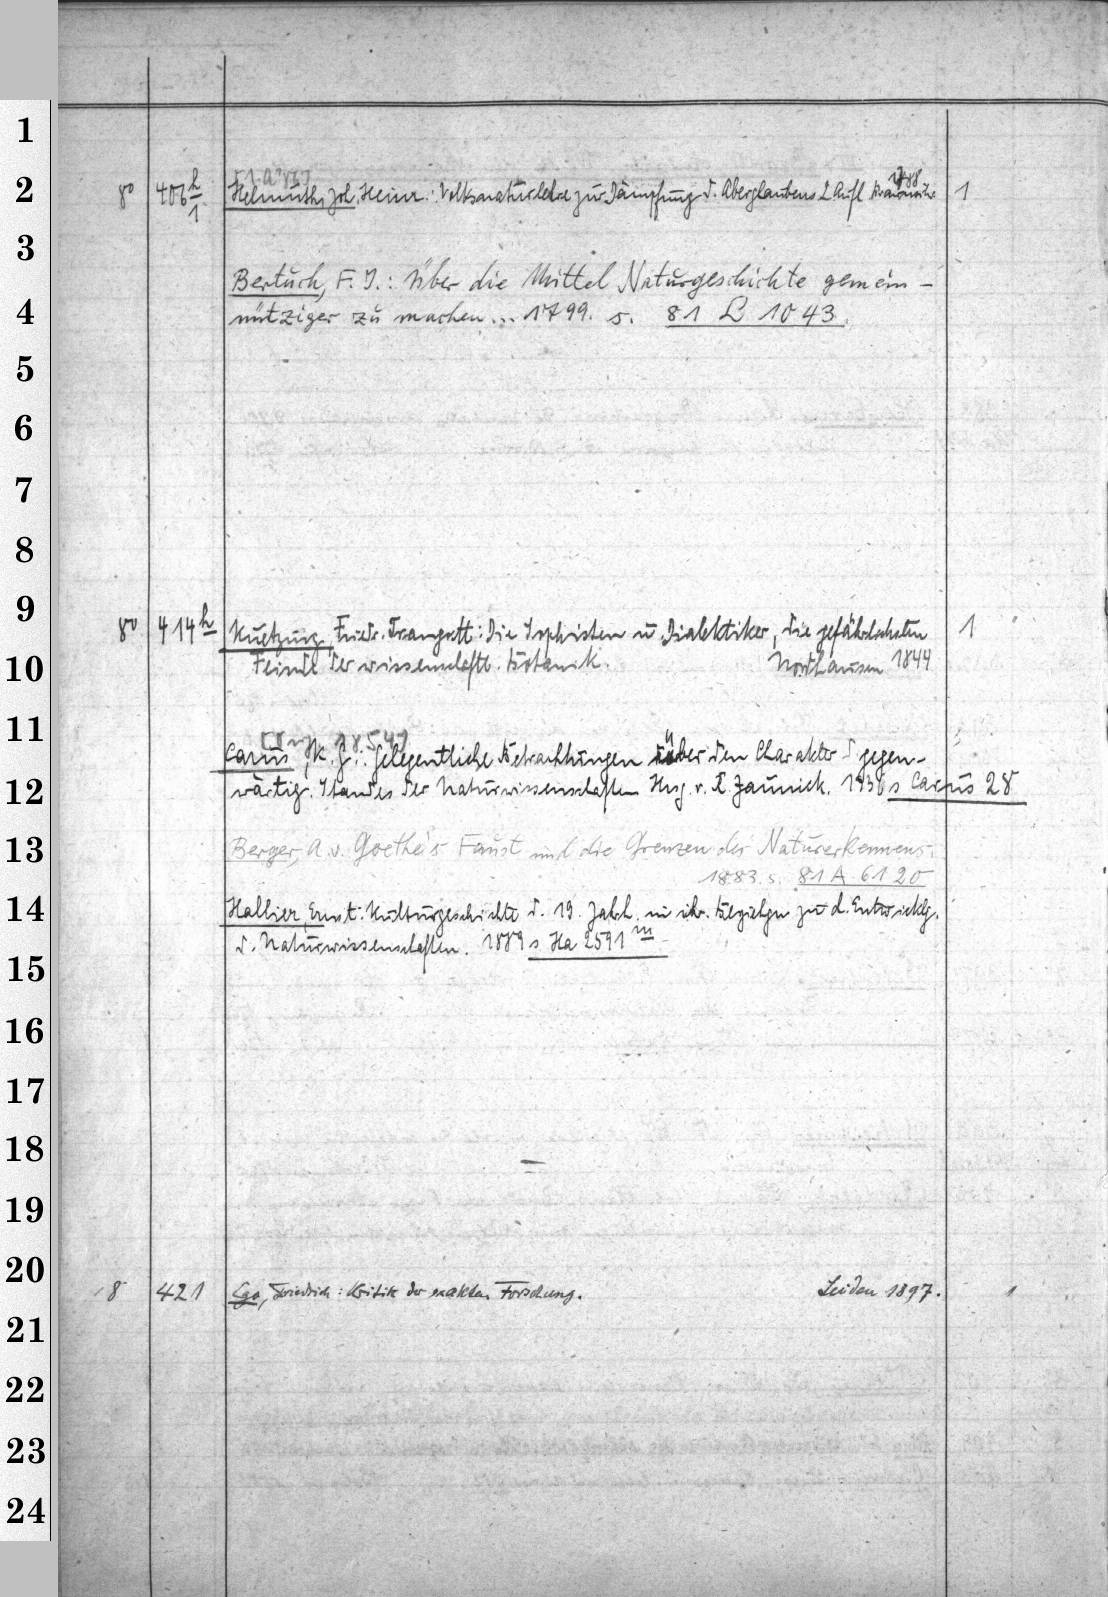 1
2
8° 406 h/1 Helmuth, Joh. Heinr.: Volksnaturlehre zur Dämpfung d. Aberglaubens 2. Aufl. 1788 1
3
Bertuch, F. J.: Über die Mittel Naturgeschichte gemein-
4
nütziger zu machen... 1799. s. 81 L 1043.
5
6
7
8
9
8° 414 h Kuetzing, Friedr. Traugott: Die Sophisten u Dialektiker, die gefährlichsten 1
10
Feinde der wissenschaftl. Botanik. Nordhausen 1844
11
Carus K. G.: Gelegentliche Betrachtungen über den Charakter d gegen-
12
wärtig. Standes der Naturwissenschaften Hrsg. v. R. Zaunick. 1936 s Carus 28
13
Berger, A. v. Goethe's Faust und die Grenzen des Naturerkennens.
1883. s. 81 A 6120
14
Hallier, Ernst: Kulturgeschichte d. 19. Jahrh. in ihr. Beziehgn zu d. Entwicklg.
d. Naturwissenschaften. 1889 s Ha 2591 m
15
16
17
18
19
20
8 421 Ego, Friedrich: Kritik der exakten Forschung. Leiden 1897. 1
21
22
23
24